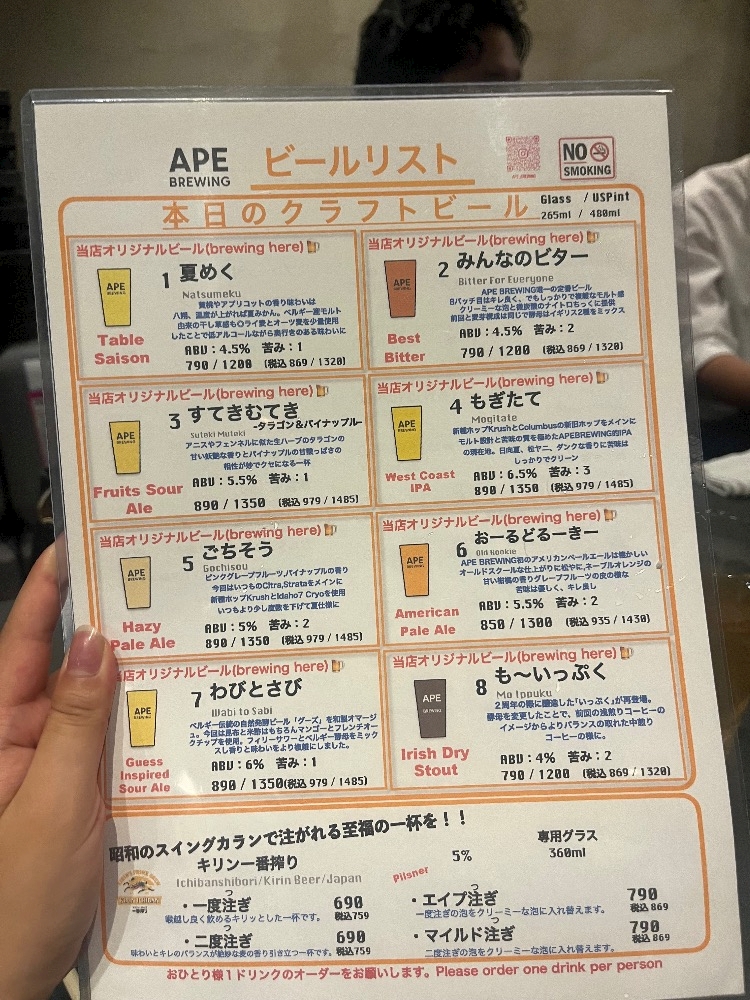 APE
BREWING
ビールリスト
NO
SMOKING
本日のクラフトビール
Glass / USPint
265ml / 480ml
当店オリジナルビール(brewing here)
APE
BREWING
1 夏めく
Natsumeku
黄桃やアプリコットの香り味わいは
八朔、温度が上がれば夏みかん。ベルギー産モルト
由来の干し草感もライ麦とオーツ麦を少量使用
したことで低アルコールながら奥行きのある味わいに
Table
Saison
ABV：4.5% 苦み：1
790 / 1200 (税込 869 / 1320)
当店オリジナルビール(brewing here)
APE
BREWING
2 みんなのビター
Bitter For Everyone
APE BREWING唯一の定番ビール
8バッチ目はキレ良く、でもしっかりで複雑なモルト感
クリーミーな泡と微炭酸のナイトロちっくに提供
前回と麦芽構成は同じで酵母はイギリス2種をミックス
Best
Bitter
ABV：4.5% 苦み：2
790 / 1200 (税込 869 / 1320)
当店オリジナルビール(brewing here)
APE
BREWING
3 すてきむてき
-タラゴン&パイナップル-
Suteki Muteki
アニスやフェンネルに似た生ハーブのタラゴンの
甘い妖艶な香りとパイナップルの甘酸っぱさの
相性が妙でクセになる一杯
Fruits Sour
Ale
ABV：5.5% 苦み：1
890 / 1350 (税込 979 / 1485)
当店オリジナルビール(brewing here)
APE
BREWING
4 もぎたて
Mogitate
新種ホップKrushとColumbusの新旧ホップをメインに
モルト設計と苦味の質を極めたAPEBREWING的IPA
の現在地。日向夏、松ヤニ、ダンクな香りに苦味は
しっかりでクリーン
West Coast
IPA
ABV：6.5% 苦み：3
890 / 1350 (税込 979 / 1485)
当店オリジナルビール(brewing here)
APE
BREWING
5 ごちそう
Gochisou
ピンクグレープフルーツ,パイナップルの香り
今回はいつものCitra,Strataをメインに
新種ホップKrushとIdaho7 Cryoを使用
いつもより少し度数を下げて夏仕様に
Hazy
Pale Ale
ABV：5% 苦み：2
890 / 1350 (税込 979 / 1485)
当店オリジナルビール(brewing here)
APE
BREWING
6 おーるどるーきー
Old Rookie
APE BREWING初のアメリカンペールエールは懐かしい
オールドスクールな仕上がりに松やに、ネーブルオレンジの
甘い柑橘の香りグレープフルーツの皮の様な
苦味は優しく、キレ良し
American
Pale Ale
ABV：5.5% 苦み：2
850 / 1300 (税込 935 / 1430)
当店オリジナルビール(brewing here)
APE
BREWING
7 わびとさび
Wabi to Sabi
ベルギー伝統の自然発酵ビール「グーズ」を和製オマージ
ュ。今回は昆布と米酢はもちろんマンゴーとフレンチオー
クチップを使用。フィリーサワーとベルギー酵母をミック
スし香りと味わいをより複雑にしました。
Guess
Inspired
Sour Ale
ABV：6% 苦み：1
890 / 1350(税込 979 / 1485)
当店オリジナルビール(brewing here)
APE
BREWING
8 も〜いっぷく
Mo Ippuku
2周年の際に醸造した「いっぷく」が再登場。
酵母を変更したことで、前回の浅煎りコーヒーの
イメージからよりバランスの取れた中煎り
コーヒーの様に。
Irish Dry
Stout
ABV：4% 苦み：2
790 / 1200 (税込 869 / 1320)
昭和のスイングカランで注がれる至福の一杯を！！
キリン一番搾り
Ichibanshibori/Kirin Beer/Japan
Pilsner
5%
専用グラス
360ml
・一度注ぎ
つ
690
税込759
喉越し良く飲めるキリッとした一杯です。
・二度注ぎ
つ
690
税込759
味わいとキレのバランスが絶妙な麦の香り引き立つ一杯です。
・エイプ注ぎ
つ
790
税込 869
一度注ぎの泡をクリーミーな泡に入れ替えます。
・マイルド注ぎ
つ
790
税込 869
二度注ぎの泡をクリーミーな泡に入れ替えます。
おひとり様1ドリンクのオーダーをお願いします。Please order one drink per person